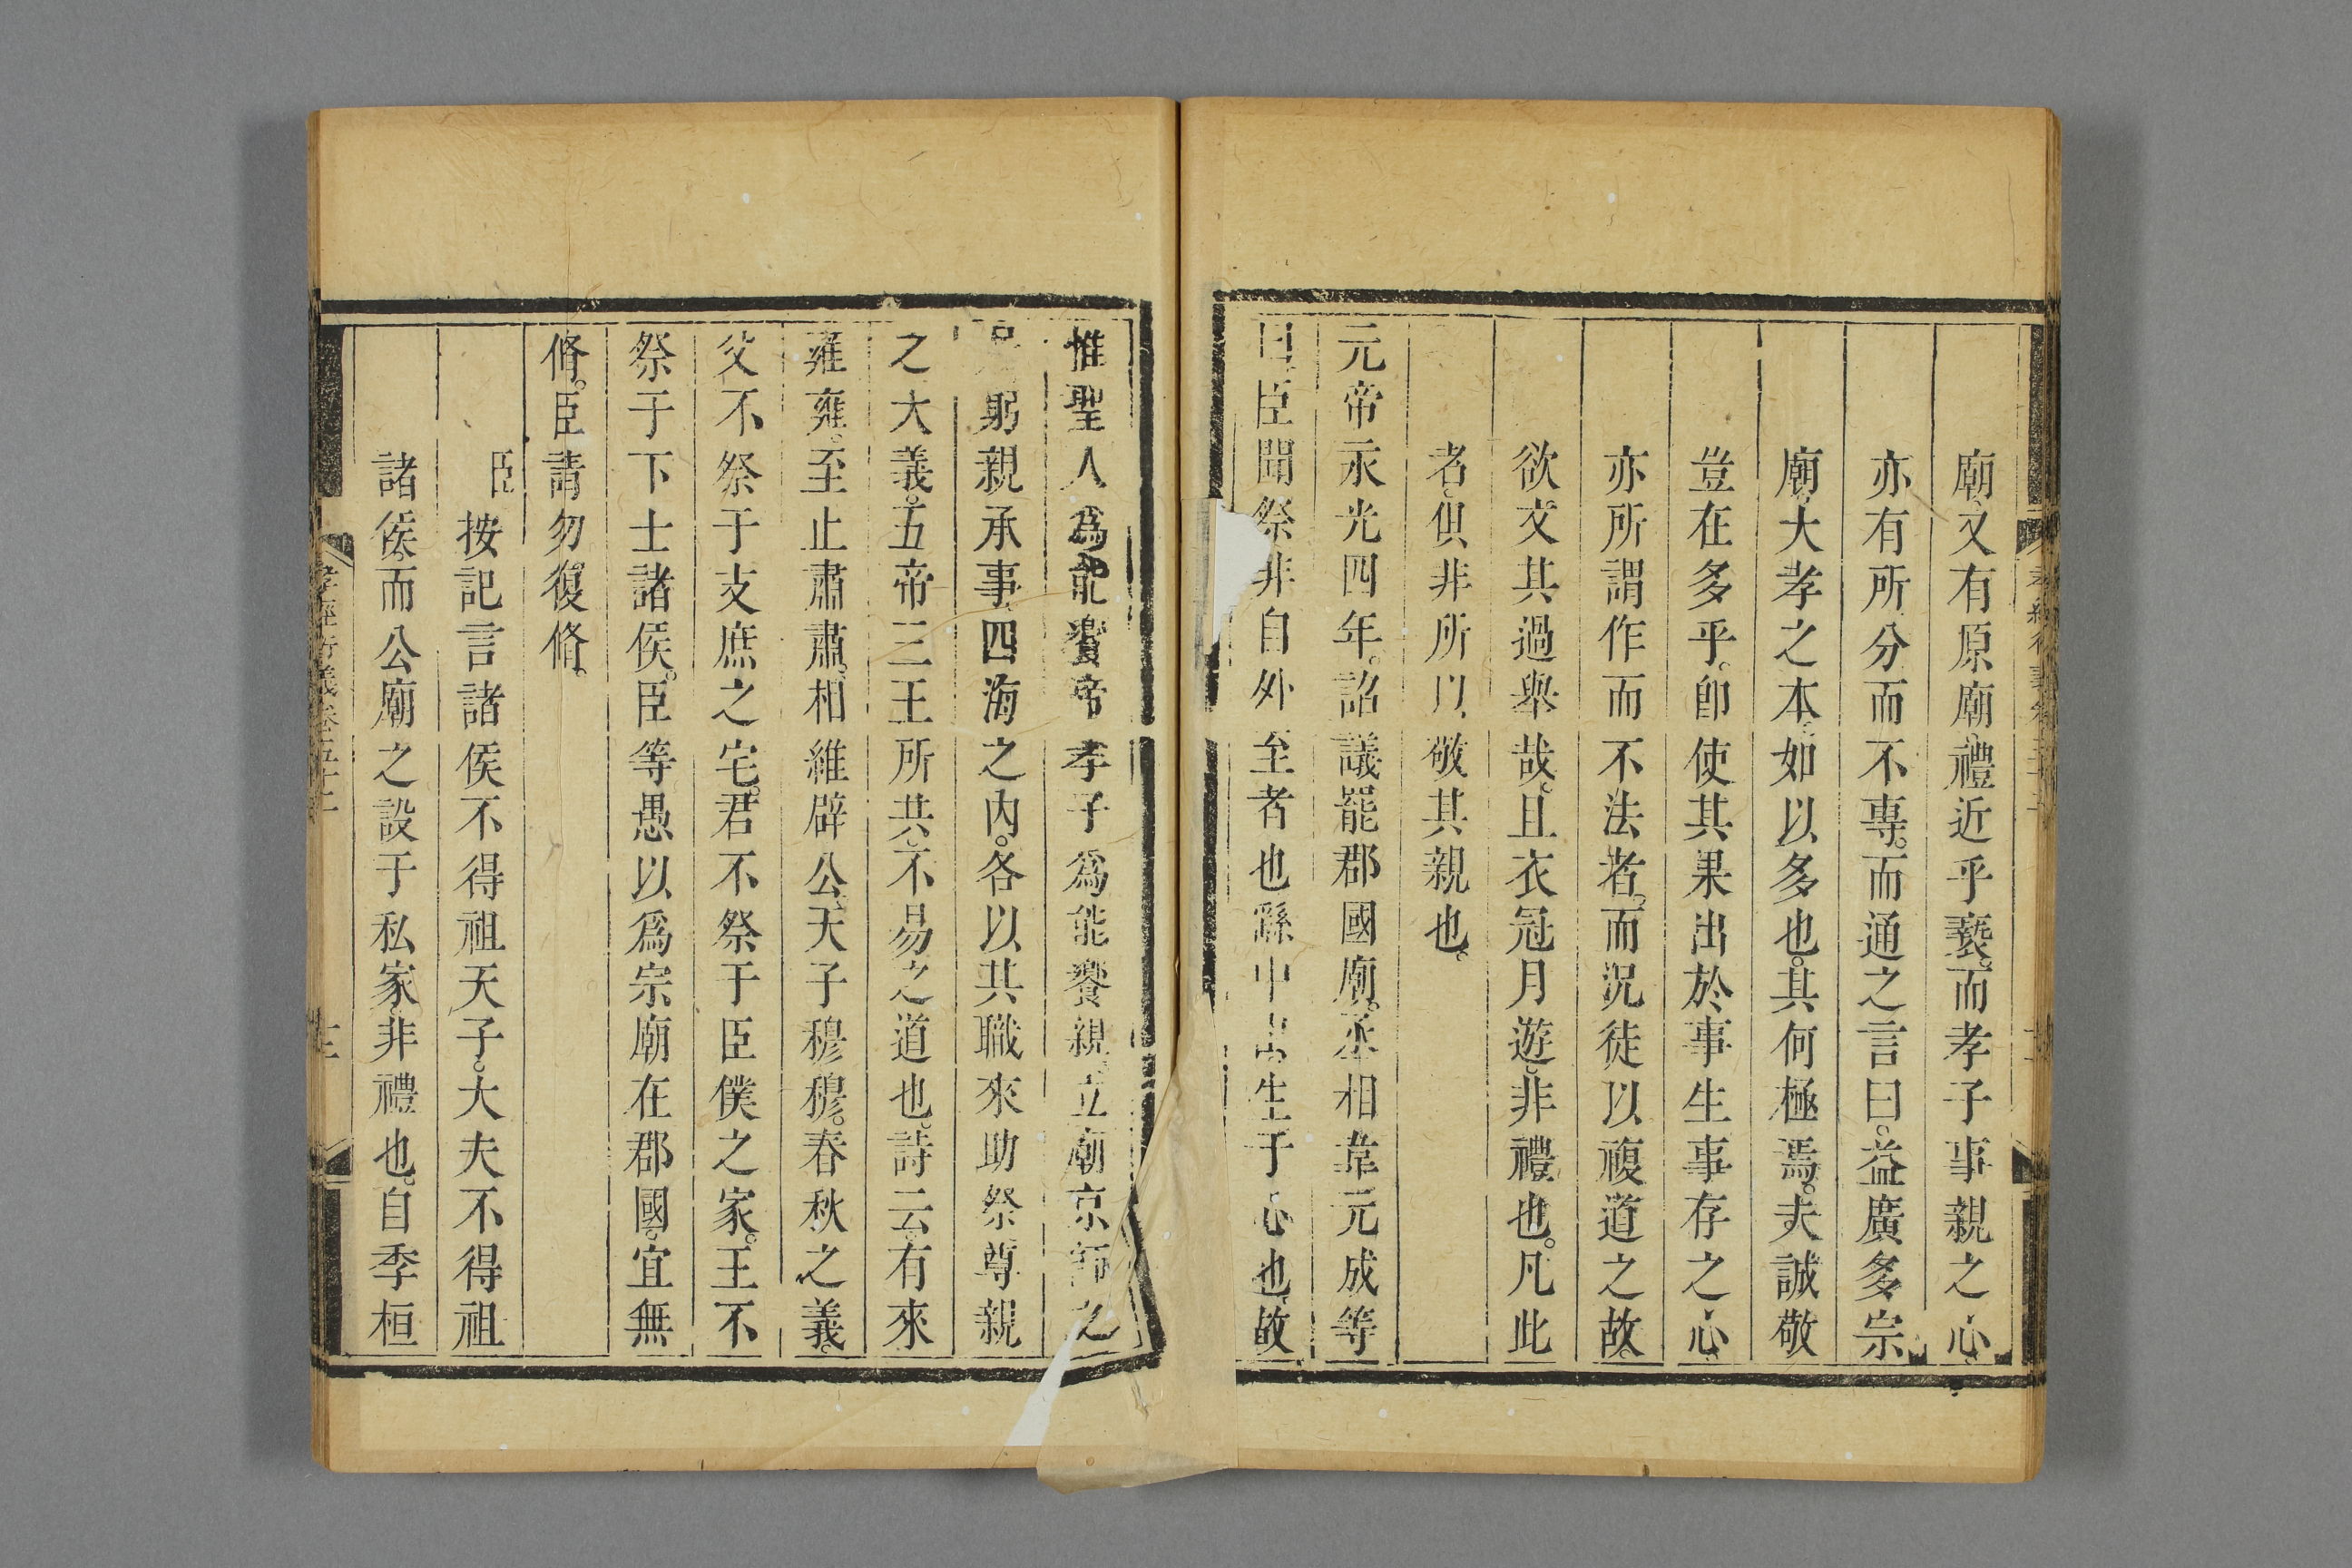 廟、又有原廟、禮近乎褻。而孝子事親之心。
亦有所分而不專。而通之言曰。益廣多宗
廟、大孝之本、如以多也。其何極焉。夫誠敬
豈在多乎。卽使其果出於事生事存之心。
亦所謂作而不法者。而況徒以複道之故。
欲文其過舉哉。且衣冠月遊、非禮也。凡此
者、俱非所以敬其親也。
元帝永光四年。詔議罷郡國廟。丞相韋元成等
曰臣聞祭非自外至者也繇中出生于心也、故
惟聖人爲能饗帝孝子爲能饗親、立廟京師之
躬親承事、四海之內。各以其職來助祭、尊親
之大義。五帝三王所共、不易之道也。詩云。有來
雍雍。至止肅肅。相維辟公、天子穆穆。春秋之義。
父不祭于支庶之宅。君不祭于臣僕之家。王不
祭于下士諸侯。臣等愚以爲宗廟在郡國。宜無
脩。臣請勿復脩。
臣按記言諸侯不得祖天子。大夫不得祖
諸侯、而公廟之設于私家、非禮也。自季桓
孝經衍義卷五十二